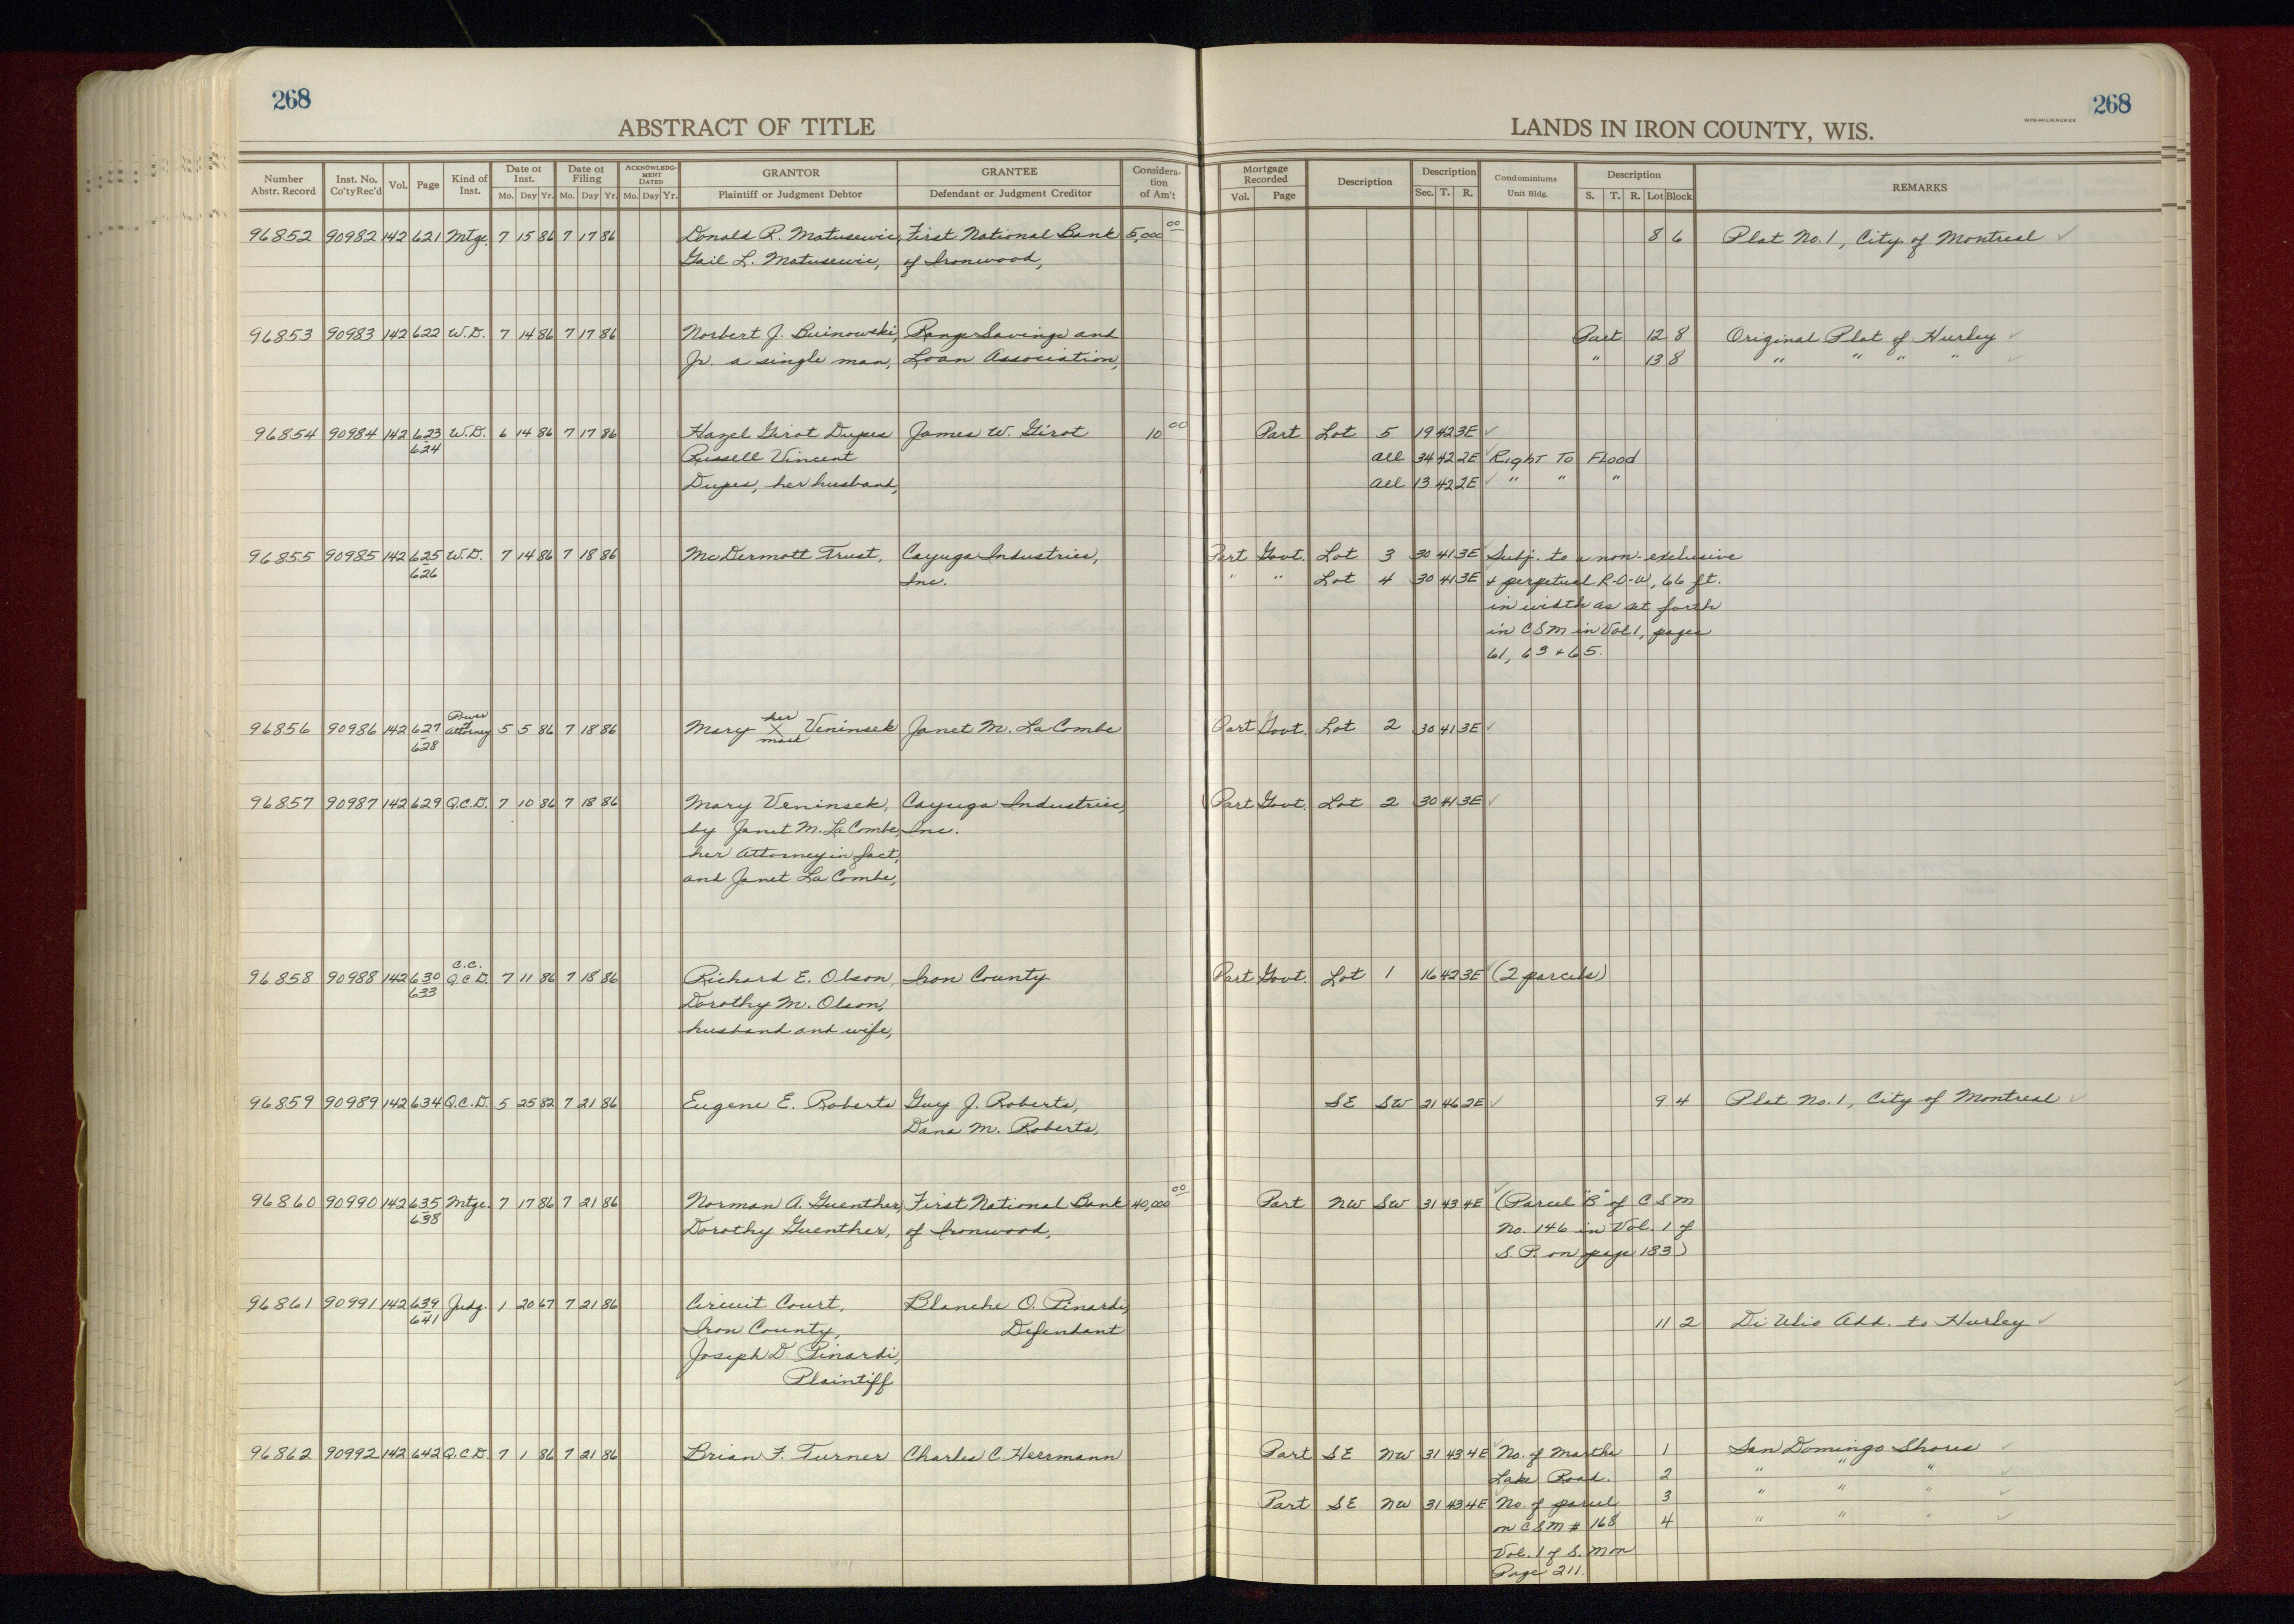 268
268
ABSTRACT OF TITLE
LANDS IN IRON COUNTY, WIS.
WPB-MILWAUKEE
Number Abstr. Record | Inst. No. Co'ty Rec'd | Vol. | Page | Kind of Inst. | Date of Inst. Mo. Day Yr. | Date of Filing Mo. Day Yr. | ACKNOWLEDGMENT DATED Mo. Day Yr. | GRANTOR Plaintiff or Judgment Debtor | GRANTEE Defendant or Judgment Creditor | Consideration of Am't | Mortgage Recorded Vol. Page | Description | Description Sec. T. R. | Condominiums Unit Bldg. | Description S. T. R. Lot Block | REMARKS
96852 90982 142 621 Mtge. 7 15 86 7 17 86 Donald R. Matusewic, First National Bank 5,000 00 8 6 Plat No. 1, City of Montreal ✓
Gail L. Matusewic, of Ironwood,
96853 90983 142 622 W.D. 7 14 86 7 17 86 Norbert J. Buinowski, Range Savings and Part 12 8 Original Plat of Hurley ✓
Jr. a single man, Loan Association, " 13 8 " " " " ✓
96854 90984 142 623 - 624 W.D. 6 14 86 7 17 86 Hazel Girot Dupes James W. Girot 10 00 Part Lot 5 19 42 3E ✓
Russell Vincent All 34 42 2E ✓ Right To Flood
Dupes, her husband, All 13 42 2E ✓ " " "
96855 90985 142 625 - 626 W.D. 7 14 86 7 18 86 McDermott Trust, Cayuga Industries, Part Govt. Lot 3 30 41 3E Subj. to a non-exclusive
Inc. " " Lot 4 30 41 3E + perpetual R-O-W, 66 ft.
in width as set forth
in CSM in Vol 1, pages
61, 63 + 65.
96856 90986 142 627 - 628 Power of Attorney 5 5 86 7 18 86 Mary her X mark Veninsek Janet M. LaCombe Part Govt. Lot 2 30 41 3E ✓
96857 90987 142 629 Q.C.D. 7 10 86 7 18 86 Mary Veninsek, Cayuga Industries, Part Govt. Lot 2 30 41 3E ✓
by Janet M. LaCombe, Inc.
her Attorney in fact,
and Janet LaCombe,
96858 90988 142 630 - 633 C.C. Q.C.D. 7 11 86 7 18 86 Richard E. Olson, Iron County Part Govt. Lot 1 16 42 3E ✓ (2 parcels)
Dorothy M. Olson,
husband and wife,
96859 90989 142 634 Q.C.D. 5 25 82 7 21 86 Eugene E. Roberts Guy J. Roberts, SE SW 21 46 2E ✓ 9 4 Plat No. 1, City of Montreal ✓
Dana M. Roberts,
96860 90990 142 635 - 638 Mtge. 7 17 86 7 21 86 Norman A. Guenther, First National Bank 40,000 00 Part NW SW 31 43 4E ✓ (Parcel "B" of CSM
Dorothy Guenther, of Ironwood, No. 146 in Vol. 1 of
S.P. on page 183)
96861 90991 142 639 - 641 Judg. 1 20 67 7 21 86 Circuit Court, Blanche O. Pinardi,
Iron County, Defendant 11 2 Di Ulio Add. to Hurley ✓
Joseph D. Pinardi,
Plaintiff
96862 90992 142 642 Q.C.D. 7 1 86 7 21 86 Brian F. Turner Charles C. Herrmann Part SE NW 31 43 4E ✓ No. of Martha 1 San Domingo Shores ✓
Lake Road. 2 " " " ✓
Part SE NW 31 43 4E No. of parcel 3 " " " ✓
on CSM # 168 4 " " " ✓
Vol. 1 of S. M on
Page 211.